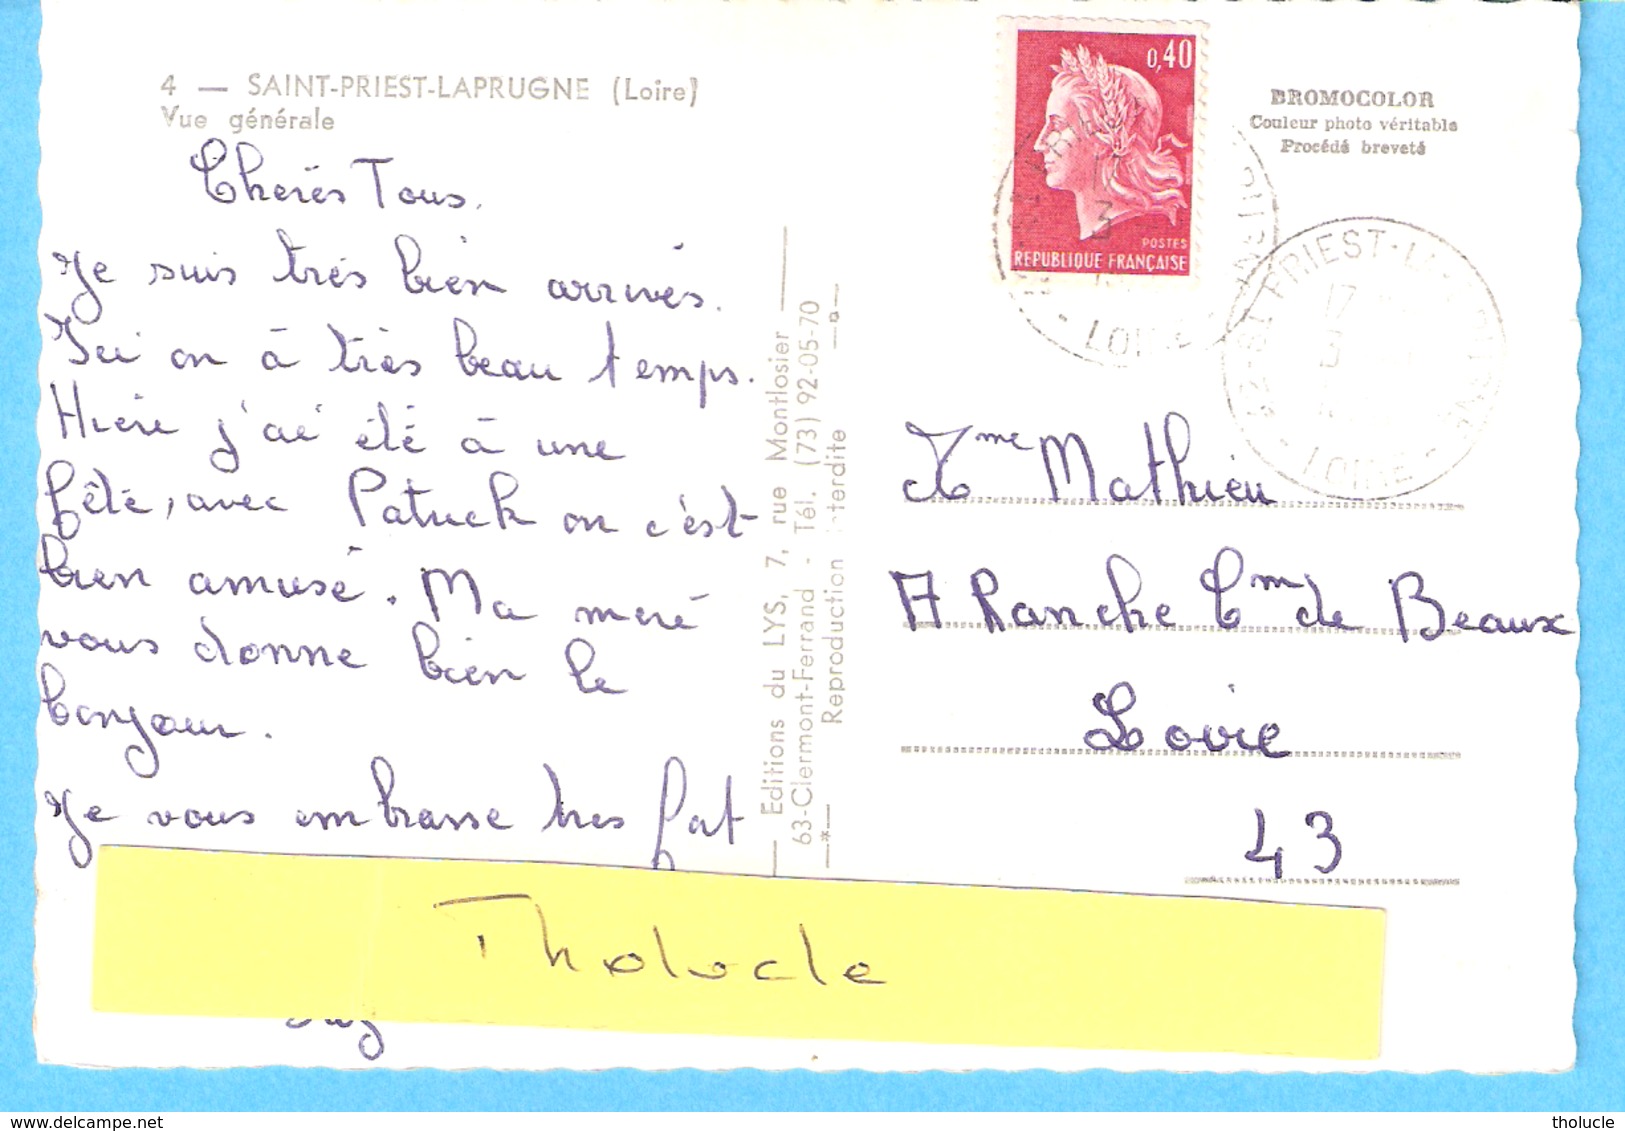 4 — SAINT-PRIEST-LAPRUGNE (Loire)
Vue générale
Cherès Tous.
Je suis très bien arrivés.
Ici on à très beau temps.
Hière j'ai été à une
fêté, avec Patrick on c'est
bien amusé. Ma meré
vous donne bien le
bonjour.
Je vous embrasse tres fort
Editions du LYS, 7, rue Montlosier
63-Clermont-Ferrand - Tél. (73) 92-05-70
Reproduction interdite
0,40
POSTES
REPUBLIQUE FRANÇAISE
BROMOCOLOR
Couleur photo véritable
Procédé breveté
42-ST PRIEST-LAPRUGNE
17
LOIRE
LOIRE
Mme Mathieu
A Ranche Cm de Beaux
Loire
43
Tholucle
tholucle